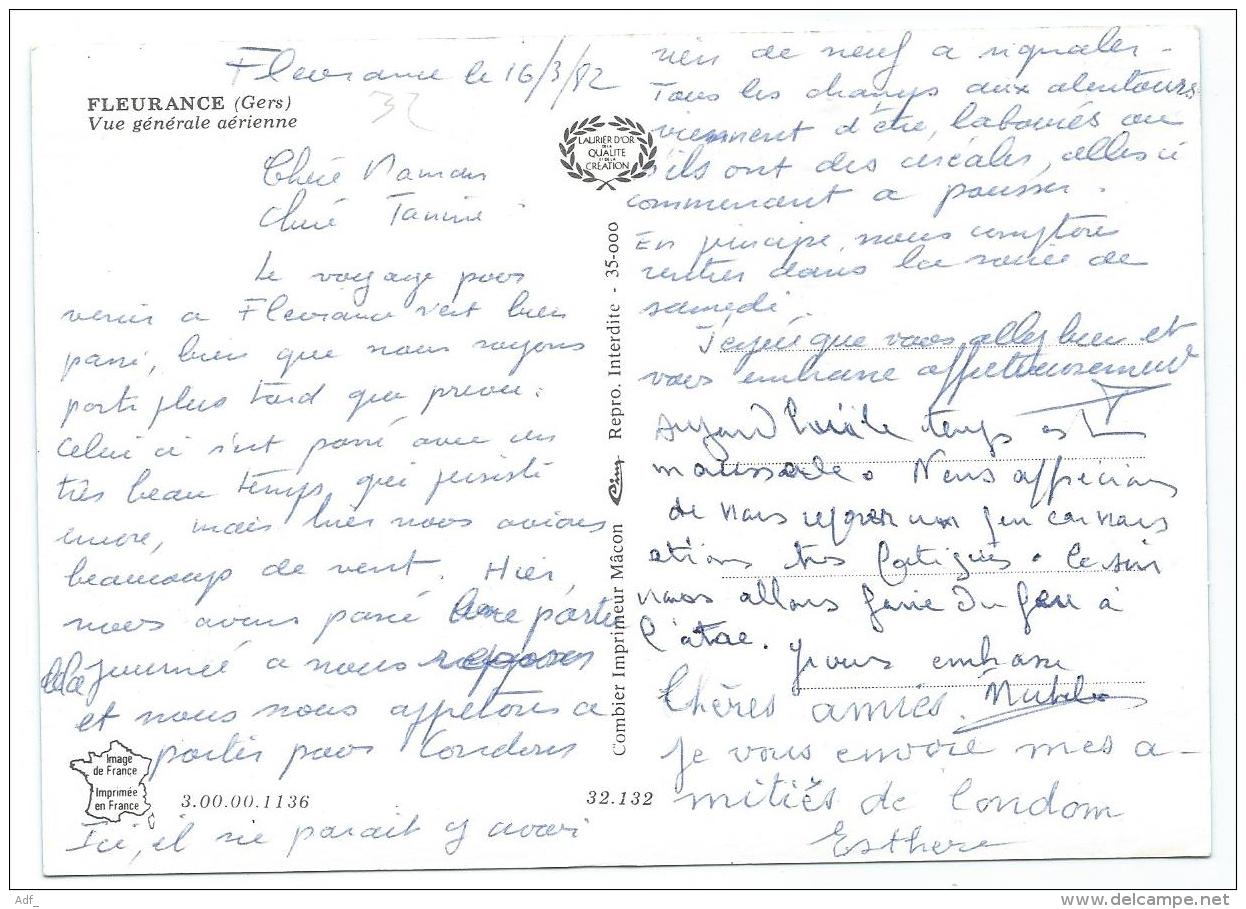 Fleurance le 16/3/82
FLEURANCE (Gers)
Vue générale aérienne
32
Chère Maman
chère
Le voyage pour
venir a Fleurance s'est bien
passé, bien que nous soyons
parti plus tard que prevu.
Celui ci s'est passé avec un
très beau temps, qui persiste
encore, mais hier nous avions
beaucoup de vent. Hier,
nous avons passé une partie
de la journeé a nous reposer
et nous nous appretons a
partir pour Condom
Ici, il ne parait y avoir
Image
de France
Imprimée
en France
3.00.00.1136
32.132
LAURIER D'OR
DE LA
QUALITE
ET DE LA
CREATION
Combier Imprimeur Mâcon Cim Repro. Interdite - 35-000
rien de neuf a signaler.
Tous les champs aux alentours
viennent d'être, labourés ou
s'ils ont des céréales, celles ci
commencent a pousser.
En principe, nous comptons
rentrer dans la soirée de
samedi.
J'espère que vous allez bien et
vous embrasse affectueusement
Aujourd'hui le temps est
maussade. Nous apprécions
de nous reposer un peu car nous
etions très fatigués. Ce soir
nous allons faire du feu à
l'atre. Je vous embrasse
Chères amies.
Je vous envoie mes a-
mitiés de Condom
Esthere
Adf_
www.delcampe.net